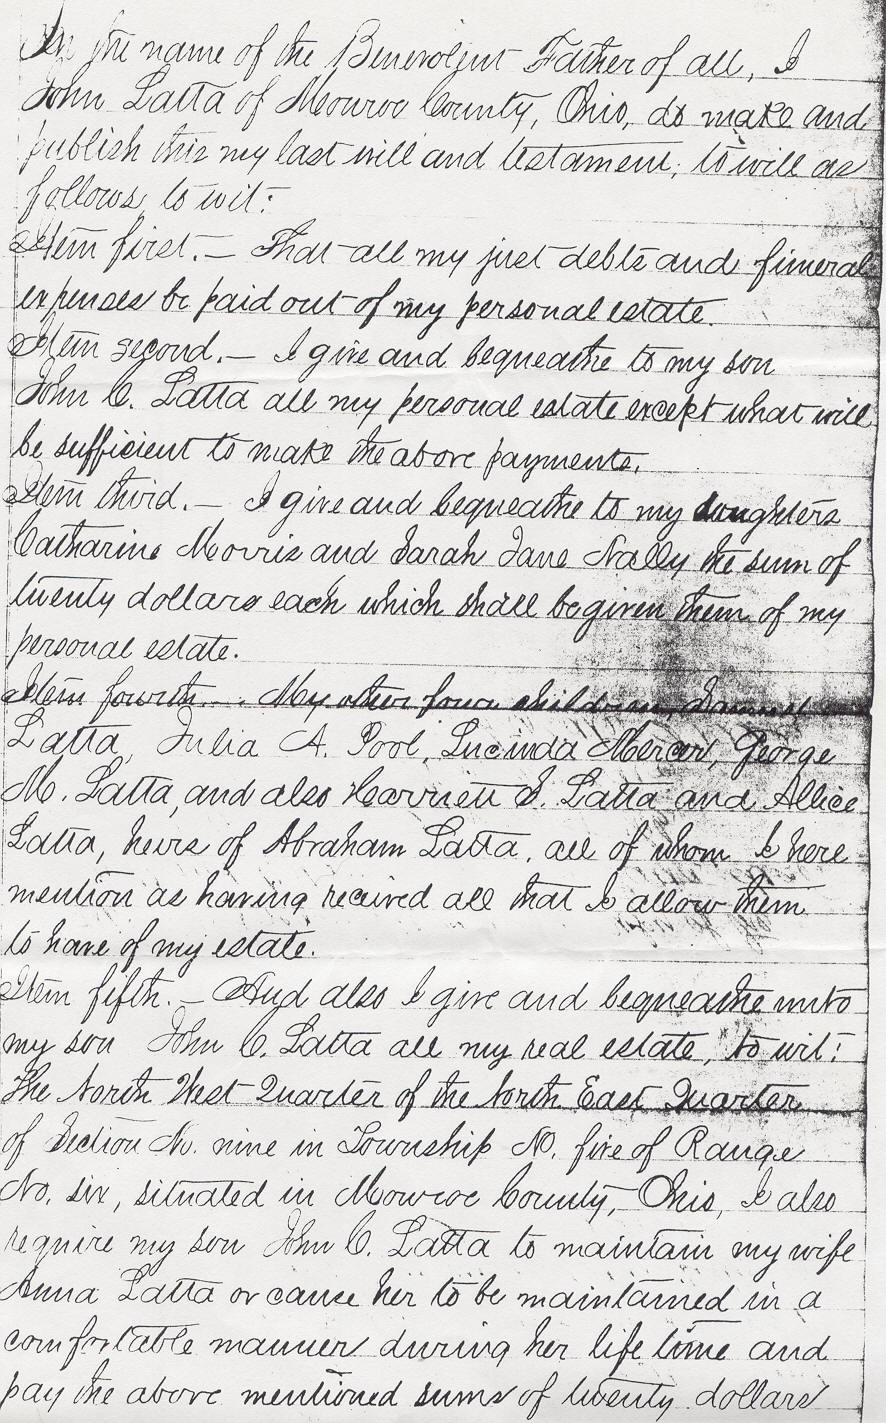 In the name of the Benevolent Father of all, I
John Latta of Monroe County, Ohio, do make and
publish this my last will and testament, to will as
follows, to wit:
Item first. — That all my just debts and funeral
expenses be paid out of my personal estate.
Item second. — I give and bequeathe to my son
John C. Latta all my personal estate except what will
be sufficient to make the above payments.
Item thrid. — I give and bequeathe to my daughters
Catharine Morris and Sarah Jane Nally the sum of
twenty dollars each which shall be given them of my
personal estate.
Item fourth. — My other four children,
Latta, Julia A. Pool, Lucinda Mercer, George
M. Latta, and also Harriett I. Latta and Allice
Latta, heirs of Abraham Latta, all of whom I here
mention as having recived all that I allow them
to have of my estate.
Item fifth. — And also I give and bequeathe unto
my son John C. Latta all my real estate, to wit:
The North West Quarter of the North East Quarter
of Section No. nine in Township No. five of Range
No. six, situated in Monroe County, Ohio, I also
require my son John C. Latta to maintain my wife
Anna Latta or cause her to be maintained in a
comfortable manner during her life time and
pay the above mentioned sums of twenty dollars